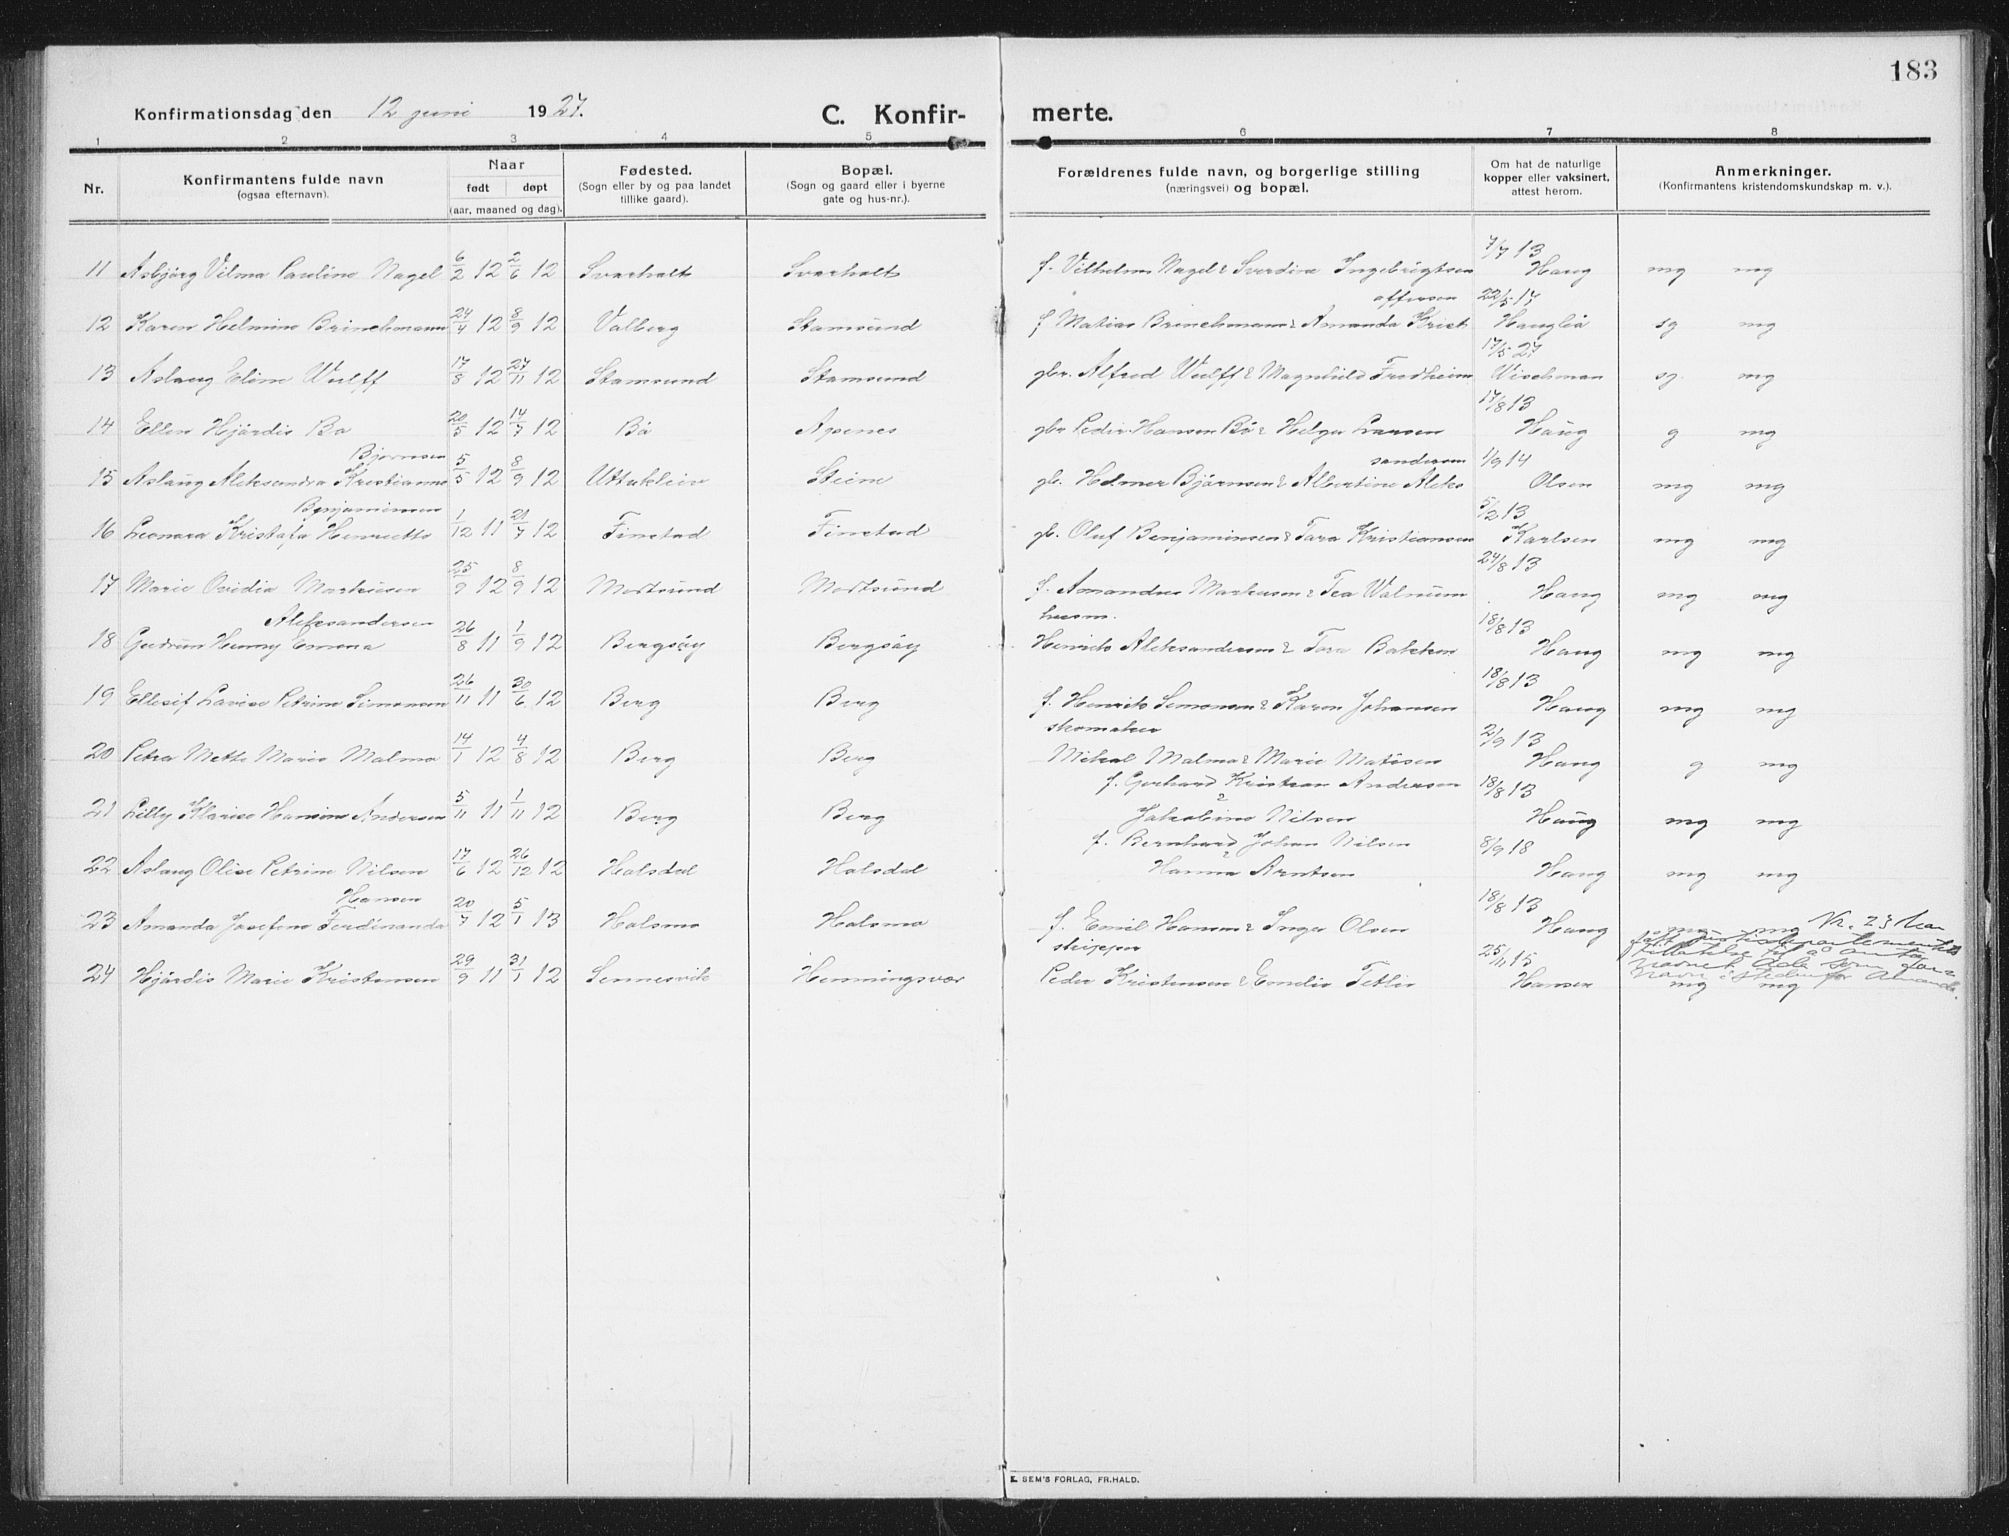 183
Konfirmationsdag den 12 juni 1927.
C. Konfir- merte.
1 2 3 4 5 6 7 8
Nr.
Konfirmantens fulde navn
(ogsaa efternavn).
Naar
født døpt
(aar, maaned og dag).
Fødested.
(Sogn eller by og paa landet
tillike gaard).
Bopæl.
(Sogn og gaard eller i byerne
gate og hus-nr.).
Forældrenes fulde navn, og borgerlige stilling
(næringsvei) og bopæl.
Om hat de naturlige
kopper eller vaksinert,
attest herom.
Anmerkninger.
(Konfirmantens kristendomskundskap m. v.).
7/7 13
11 Asbjörg Vilma Pauline Nagel 6/2 12 2/6 12 Svarholt Svarholt f. Vilhelm Nagel & Sverdine Ingebrigtsen Haug mg mg
offersen 22/5 17
12 Karen Helmine Brinchmann 24/4 12 8/9 12 Valberg Stamsund f Matias Brinchmann & Amanda Krist Hauglid sg mg
17/5 27
13 Aslaug Eline Wulff 17/8 12 27/11 12 Stamsund Stamsund gbr. Alfred Wulff & Magnhild Fredheim Wischman sg. mg
17/8 13
14 Ellen Hjördis Bø 20/5 12 14/7 12 Bö Apenes gbr Peder Hansen Bö & Helga Larsen Haug g mg
Bjørnsen sandersen 1/9 14
15 Aslaug Aleksandra Kristianne 5/5 12 8/9 12 Uttakleiv Steine gb. Helmer Björnsen & Albertine Aleks Olsen mg mg
Benjaminsen 5/2 13
16 Leonora Kristofa Henriette 1/12 11 21/7 12 Finstad Finstad gb. Oluf Benjaminsen & Tara Kristiansen Karlsen mg mg
24/8 13
17 Marie Ovidia Markusen 25/9 12 8/9 12 Mortsund Mortsund f. Amandus Markusen & Tea Walnum Haug mg mg
Aleksandersen husm. 18/8 13
18 Gudrun Henny Emona 26/8 11 1/9 12 Bergsöy Bergsöy Henrik Aleksandersen & Tara Bakken Haug mg mg
18/8 13
19 Ellesif Lovise Petrine Simonsen 26/11 11 30/6 12 Berg Berg f. Henrik Simonsen & Karen Johansen Haug mg mg
skomaker 2/9 13
20 Petra Mette Marie Malmo 14/1 12 4/8 12 Berg Berg Mikal Malmo & Marie Matisen Haug g mg
f. Gerhard Kristian Andersen 18/8 13
21 Lilly Klarise Hansine Andersen 5/11 11 1/11 12 Berg Berg & Jakobine Nilsen Haug mg mg
f. Bernhard Johan Nilsen 8/9 18
22 Aslaug Olise Petrine Nilsen 17/6 12 26/12 12 Holsdal Holsdal & Hanna Arntsen Haug mg mg
Hansen 18/8 13
23 Amanda Josefine Ferdinanda 20/7 12 5/1 13 Holsmo Holsmo f. Emil Hansen & Inga Olsen Haug mg mg Nr. 23 har
fått justisdepartementets
tillatelse til å anta
navnet Ada som for-
navn i stedenfor Amanda.
skipper 25/11 15
24 Hjördis Marie Kristensen 29/9 11 31/1 12 Sennesvik Henningsvær Peder Kristensen & Emelie Tetlie Hansen mg mg
E. SEM'S FORLAG, FR.HALD.